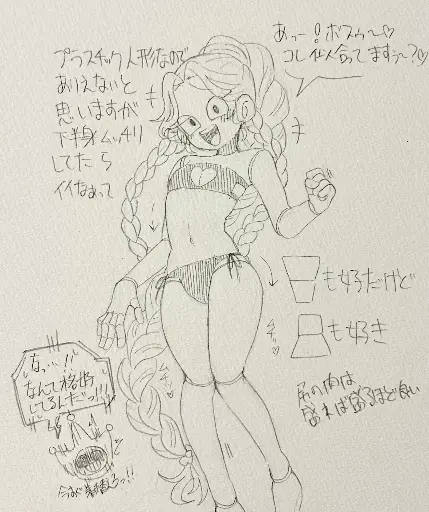 プラスチック人形なので
ありえないと
思いますが
下半身ムッチリ
してたら
イイなぁって
あっー!ボスぅ〜♡
コレ似合ってますぅ〜?♡
も好だけど
も好き
ムチッ♡
ムチッ
尻の肉は
盛れば盛るほど良い
なっ…!!
なんて格好
してるんだっ!!!
今すぐ着替えろっ!!